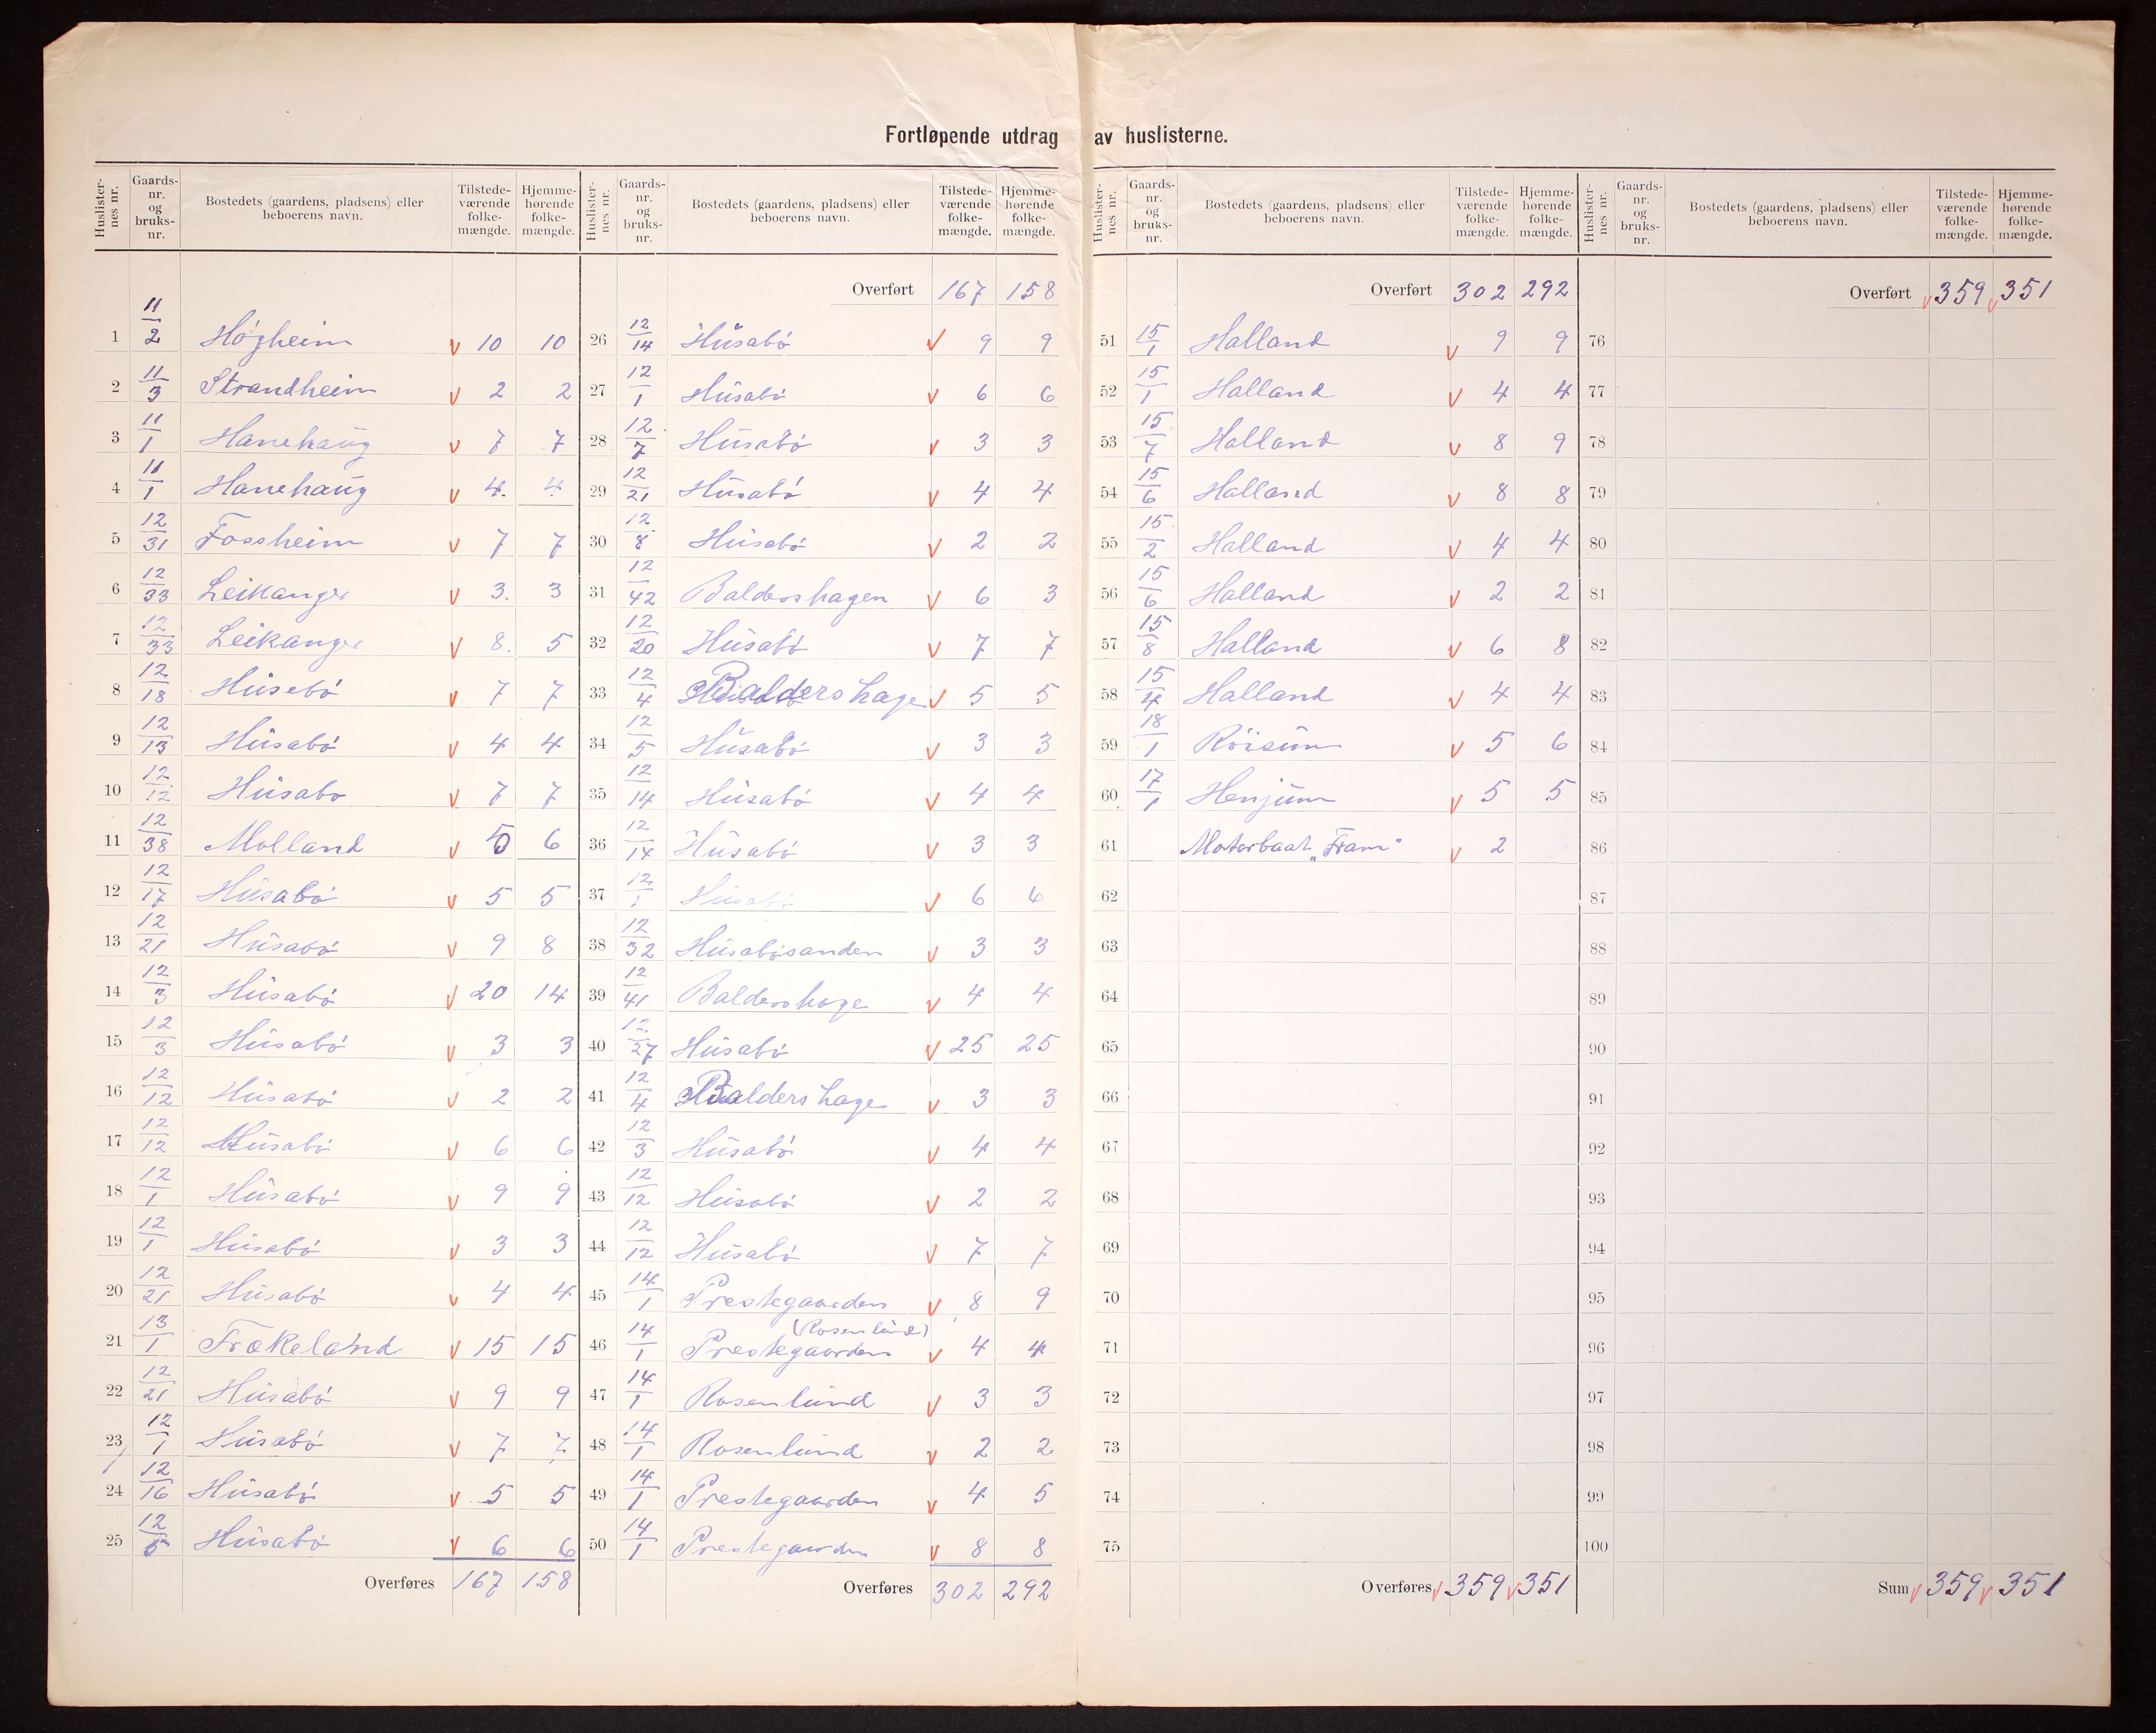 Fortløpende utdrag av huslisterne.
Huslisternes nr. Gaardsnr. og bruksnr. Bostedets (gaardens, pladsens) eller beboerens navn. Tilstedeværende folkemængde. Hjemmehørende folkemængde.
1 11/2 Högheim v 10 10
2 11/3 Strandheim v 2 2
3 11/1 Hanehaug v 7 7
4 11/1 Hanehaug v 4. 4
5 12/31 Fossheim v 7 7
6 12/33 Leikanger v 3. 3
7 12/33 Leikanger v 8. 5
8 12/18 Husebö v 7 7
9 12/13 Husabö v 4 4
10 12/12 Husabo v 7 7
11 12/38 Molland v 6
12 12/17 Husabö v 5 5
13 12/21 Husabö v 9 8
14 12/3 Husabö v 20 14
15 12/3 Husabö v 3 3
16 12/12 Husabö v 2 2
17 12/12 Husabö v 6 6
18 12/1 Husabö v 9 9
19 12/1 Husabö v 3 3
20 12/21 Husabö v 4 4
21 13/1 Frøkeland v 15 15
22 12/21 Husabö v 9 9
23 12/1 Husabö v 7 7
24 12/16 Husabö v 5 5
25 12/5 Husabö v 6 6
Overføres 167 158
Huslisternes nr. Gaardsnr. og bruksnr. Bostedets (gaardens, pladsens) eller beboerens navn. Tilstedeværende folkemængde. Hjemmehørende folkemængde.
Overført 167 158
26 12/14 Husabö v 9 9
27 12/1 Husabö v 6 6
28 12/7 Husabö v 3 3
29 12/21 Husabö v 4 4
30 12/8 Husabö v 2 2
31 12/42 Baldershagen v 6 3
32 12/20 Husabö v 7 7
33 12/4 Baldershage v 5 5
34 12/5 Husabö v 3 3
35 12/14 Husabö v 4 4
36 12/14 Husabö v 3 3
37 12/1 Husabö v 6 6
38 12/32 Husabösanden v 3 3
39 12/41 Baldershage v 4 4
40 12/27 Husabö v 25 25
41 12/4 Baldershage v 3 3
42 12/3 Husabö v 4 4
43 12/12 Husabö v 2 2
44 12/12 Husabö v 7 7
45 14/1 Prestegaarden v 8 9
46 14/1 Prestegaarden (Rosenlund) v 4 4
47 14/1 Rosenlund v 3 3
48 14/1 Rosenlund v 2 2
49 14/1 Prestegaarden v 4 5
50 14/1 Prestegaarden v 8 8
Overføres 302 292
Huslisternes nr. Gaardsnr. og bruksnr. Bostedets (gaardens, pladsens) eller beboerens navn. Tilstedeværende folkemængde. Hjemmehørende folkemængde.
Overført 302 292
51 15/1 Halland v 9 9
52 15/1 Halland v 4 4
53 15/7 Halland v 8 9
54 15/6 Halland v 8 8
55 15/2 Halland v 4 4
56 15/6 Halland v 2 2
57 15/8 Halland v 6 8
58 15/4 Halland v 4 4
59 18/1 Röisum v 5 6
60 17/1 Henjum v 5 5
61 Motorbaat „Fram" v 2
62
63
64
65
66
67
68
69
70
71
72
73
74
75
Overføres v 359 v 351
Huslisternes nr. Gaardsnr. og bruksnr. Bostedets (gaardens, pladsens) eller beboerens navn. Tilstedeværende folkemængde. Hjemmehørende folkemængde.
Overført v 359 v 351
76
77
78
79
80
81
82
83
84
85
86
87
88
89
90
91
92
93
94
95
96
97
98
99
100
Sum v 359 v 351